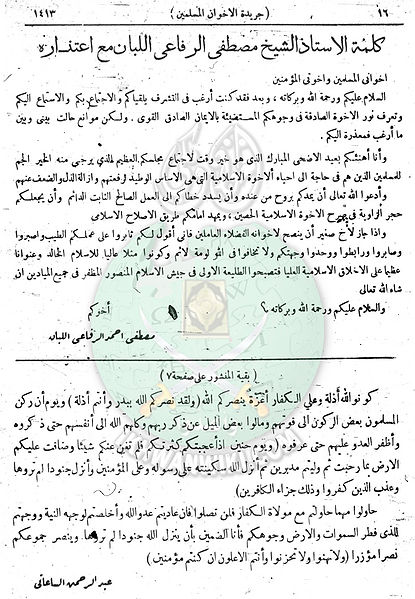 ١٦ ( جريدة الاخوان المسلمين ) ١٤١٣
كلمة الاستاذ الشيخ مصطفى الرفاعى اللبان مع اعتذاره
اخوانى المسلمين واخوتى المؤمنين
السلام عليكم ورحمة الله وبركاته ، وبعد فقد كنت أرغب فى التشرف بلقياكم والاجتماع بكم والاستماع اليكم
وتعرف نور الاخوة الصادقة فى وجوهكم المستضيئة بالايمان الصادق القوى . ولكن موانع حالت بينى وبين
ما أرغب فمعذرة اليكم .
وأنا أهنئكم بعيد الاضحى المبارك الذى هو خير وقت لاجتماع مجلسكم العظيم الذى يرجى منه الخير الجم
للمسلمين الذين هم فى حاجة الى احياء أواصر الاخوة الاسلامية التى هى الاساس الوطيد لرفعتهم وازالة الذل والضعف عنهم
وأدعوا الله تعالى أن يمدكم بروح من عنده وأن يسدد خطاكم الى العمل الصالح الثابت الدائم وأن يجعلكم
حجر الزاوية فى الاخوة الاسلامية الحصين ، ويمهد امامكم طريق الاصلاح الاسلامى
واذا جاز لأخ صغير أن ينصح لاخوانه الفضلاء العاملين فانى أقول لكم ثابروا على عملكم الطيب واصبروا
وصابروا ورابطوا ووحدوا وجهتكم ولا تخافوا فى الله لومة لائم وكونوا مثلا عاليا للاسلام الخالد وعنوانا
عظيما على الاخلاق الاسلامية العليا فتصبحوا الطليعة الاولى فى جيش الاسلام المنصور المظفر فى جميع الميادين ان
شاء الله تعالى
والسلام عليكم ورحمة الله وبركاته ؟
أخوكم
مصطفى احمد الرفاعى اللبان
( بقية المنشور على صفحة ٧ )
كونوا لله أذلة وعلى الكفار أعزة ينصركم الله ( ولقد نصركم الله ببدر وأنتم أذلة ) ويوم أن ركن
المسلمون بعض الركون الى قوتهم ومالوا بعض الميل عن ذكر ربهم وكلهم الله الى أنفسهم حتى ذكروه
وأظفر العدو عليهم حتى عرفوه ( ويوم حنين اذ أعجبتكم كثرتكم فلم تغن عنكم شيئا وضاقت عليكم
الارض بما رحبت ثم وليتم مدبرين ثم أنزل الله سكينته على رسوله وعلى المؤمنين وأنزل جنودا لم تروها
وعذب الذين كفروا وذلك جزاء الكافرين )
حاولوا مهما حاولتم مع موالاة الكفار فلن تصلوا فان عاديتم عدو الله وأخلصتم لوجهه النية ووجهتم
للذى فطر السموات والارض وجوهكم فأنا الضمين بأن ينزل الله جنودا لم تروها وينصر جموعكم
نصرا مؤزرا ( ولا تهنوا ولا تحزنوا وأنتم الاعلون ان كنتم مؤمنين )
عبد الرحمن الساعاتى